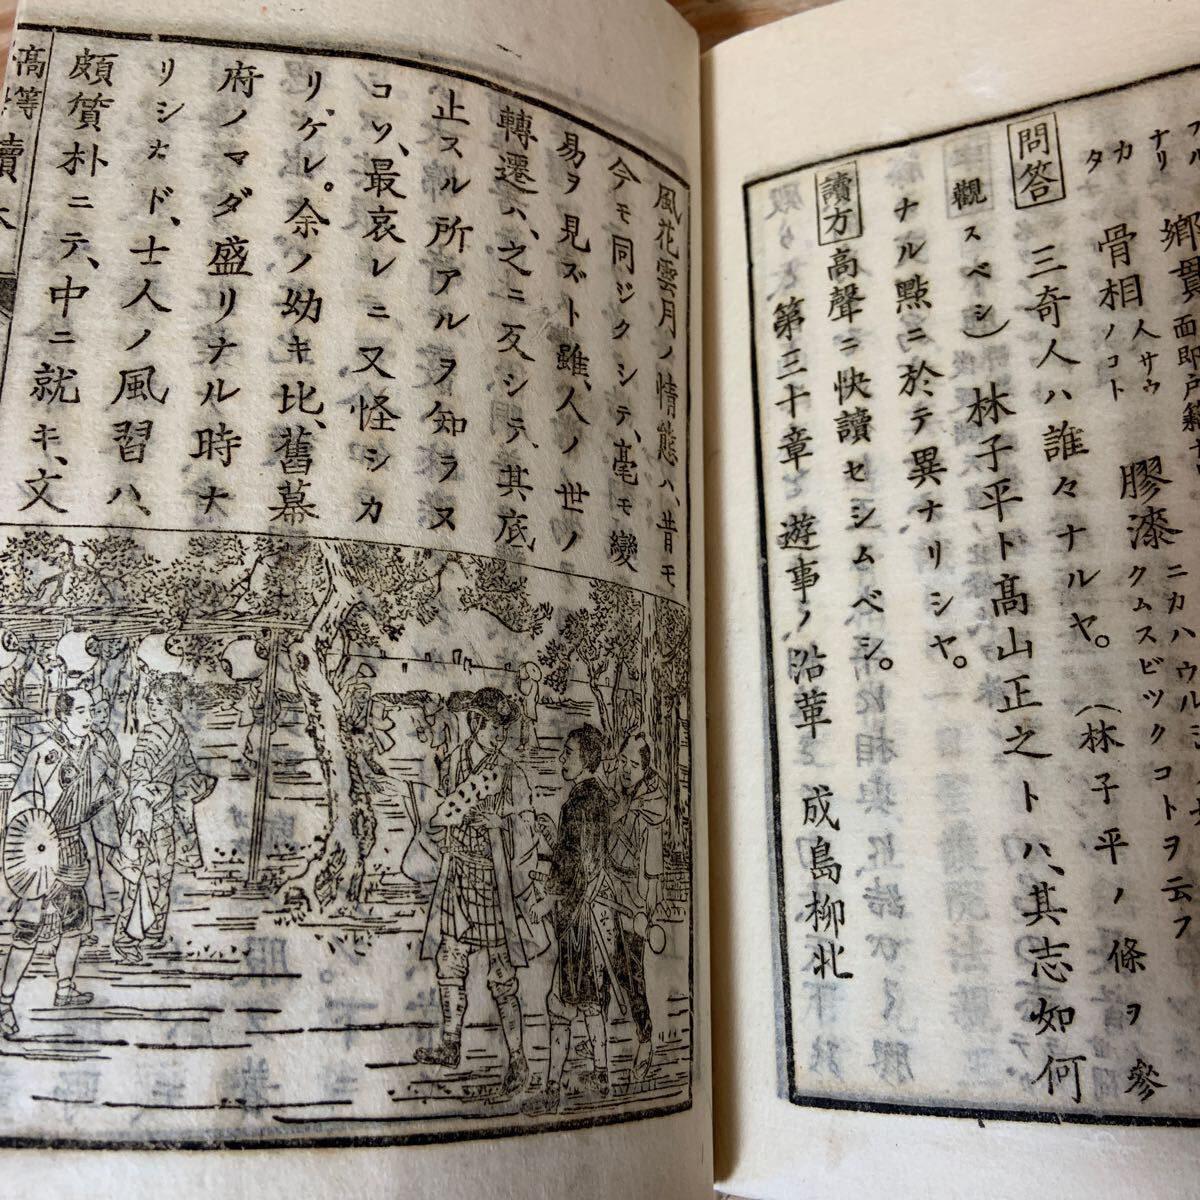 郷貫
骨相人サウノコト
膠漆ニカハウルシ
クムスビツクコトヲ云フ
問答 三奇人ハ誰々ナルヤ。(林子平ノ條ヲ參
觀スベシ)林子平ト高山正之トハ、其志如何
ナル點ニ於テ異ナリシヤ。
讀方 高聲ニ快讀セシムベシ。
第三十章 遊事ノ沿革 成島柳北
風花雲月ノ情態ハ、昔モ
今モ同ジクシテ、毫モ變
易ヲ見ズト雖、人ノ世ノ
轉遷ハ、之ニ反シテ、其底
止スル所アルヲ知ラズ
コソ、最哀レニ又怪シカ
リケレ。余ノ幼キ比、舊幕
府ノマダ盛リナル時ナ
リシカド、士人ノ風習ハ、
頗質朴ニテ、中ニ就キ、文
高等 讀本